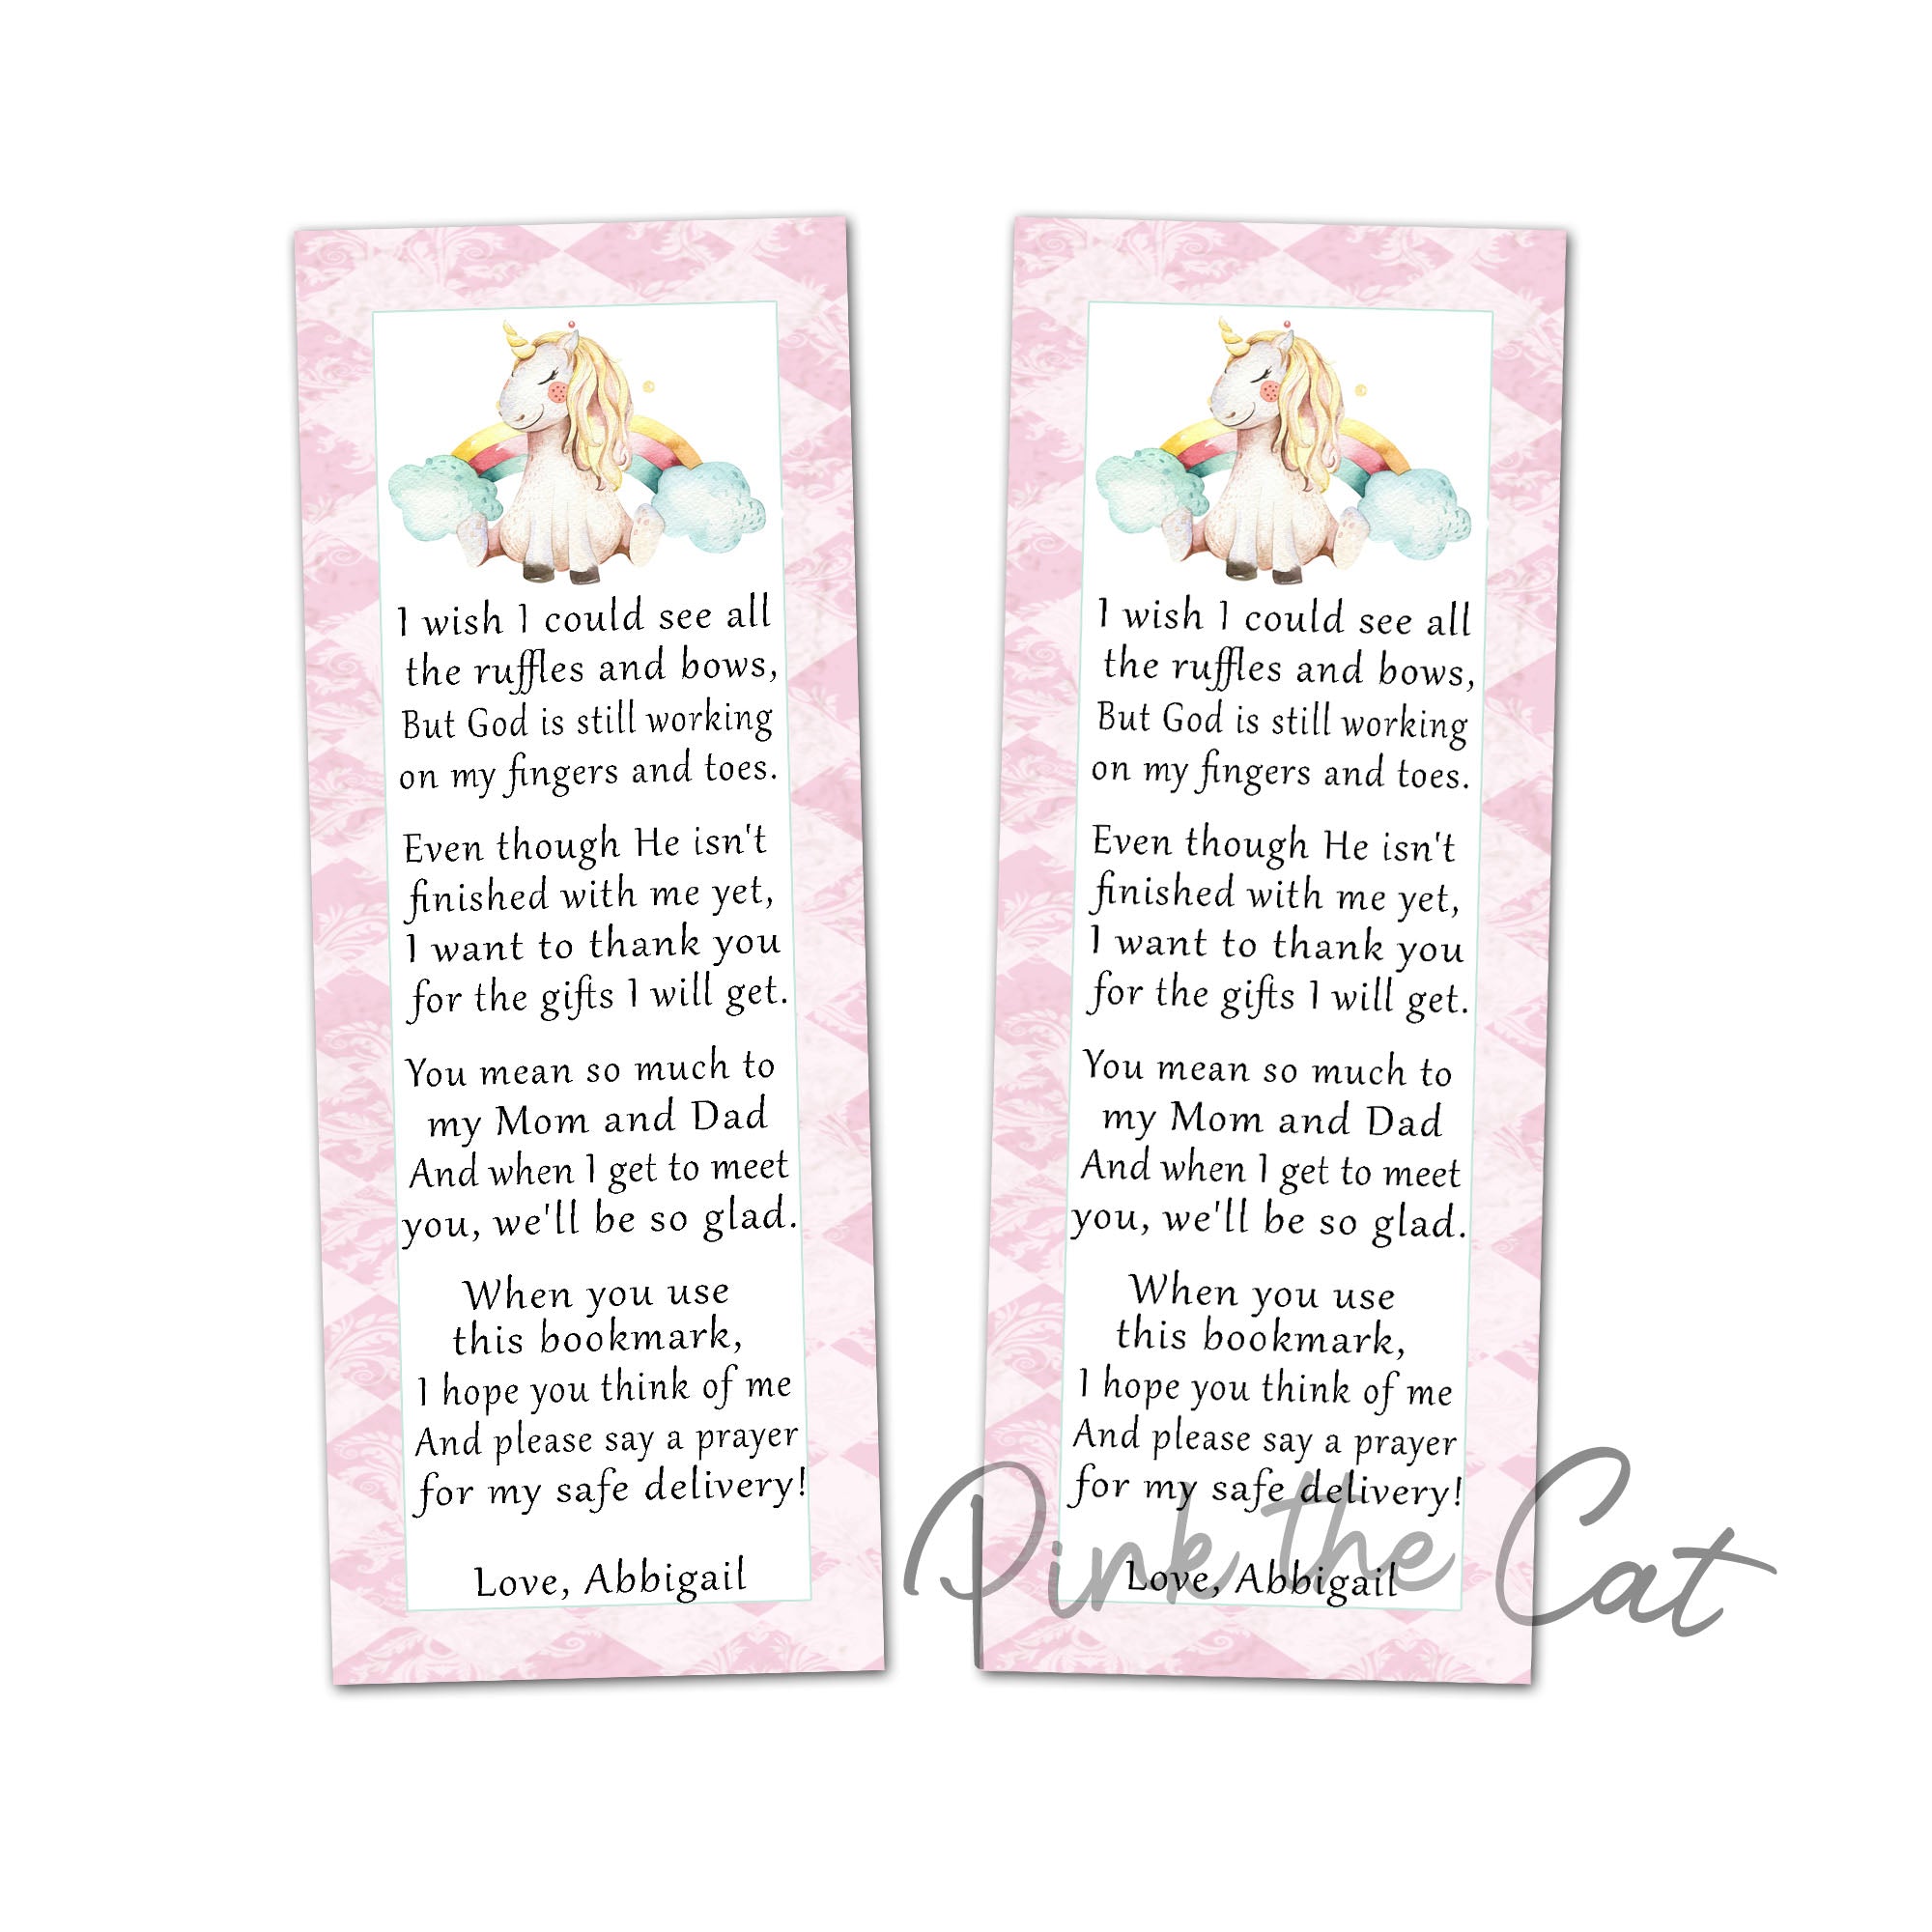 I wish I could see all
the ruffles and bows,
But God is still working
on my fingers and toes.
Even though He isn't
finished with me yet,
I want to thank you
for the gifts I will get.
You mean so much to
my Mom and Dad
And when I get to meet
you, we'll be so glad.
When you use
this bookmark,
I hope you think of me
And please say a prayer
for my safe delivery!
Love, Abbigail
I wish I could see all
the ruffles and bows,
But God is still working
on my fingers and toes.
Even though He isn't
finished with me yet,
I want to thank you
for the gifts I will get.
You mean so much to
my Mom and Dad
And when I get to meet
you, we'll be so glad.
When you use
this bookmark,
I hope you think of me
And please say a prayer
for my safe delivery!
Love, Abbigail
Pink the Cat